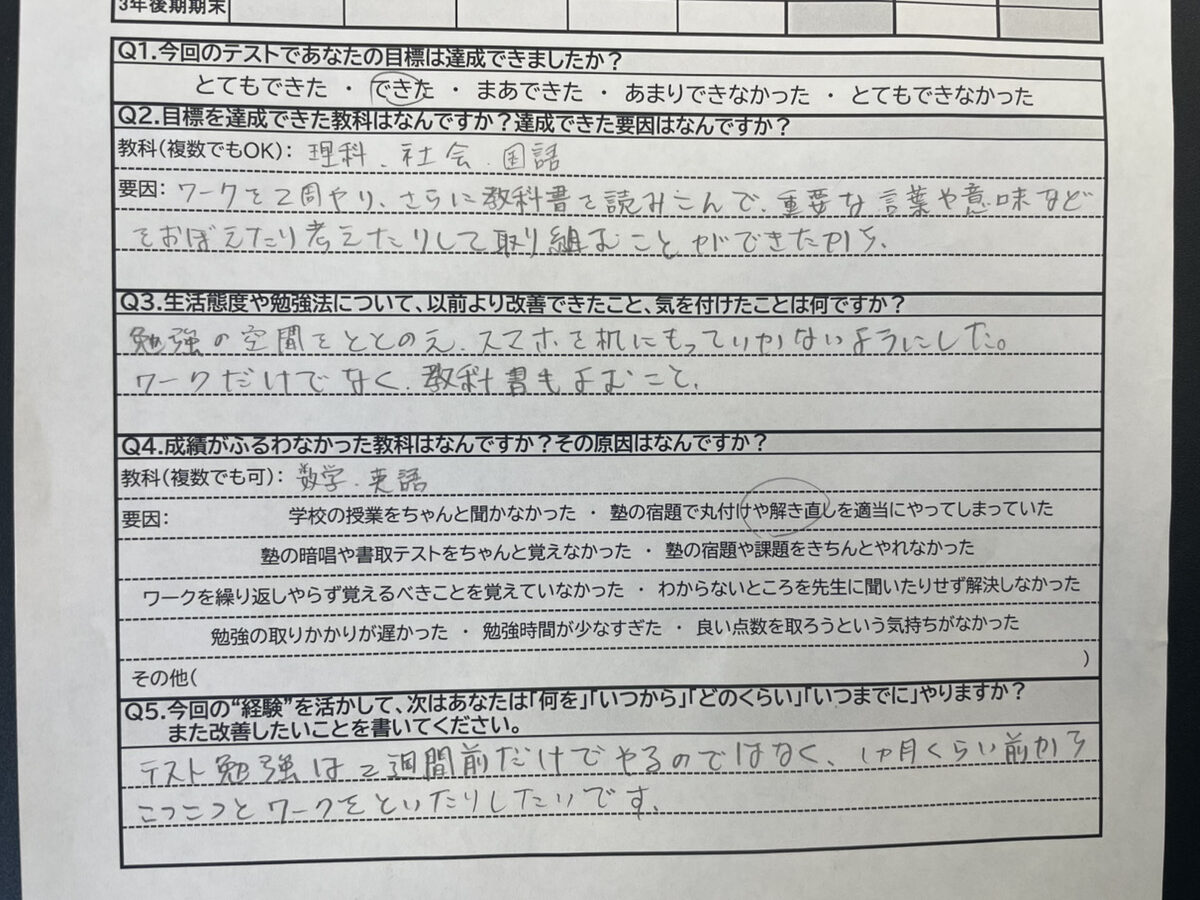 3年後期期末
Q1.今回のテストであなたの目標は達成できましたか？
とてもできた ・ できた ・ まあできた ・ あまりできなかった ・ とてもできなかった
Q2.目標を達成できた教科はなんですか？達成できた要因はなんですか？
教科(複数でもOK)： 理科、社会、国語
要因： ワークを2周やり、さらに教科書を読みこんで、重要な言葉や意味など
をおぼえたり考えたりして取り組むことができたから、
Q3.生活態度や勉強法について、以前より改善できたこと、気を付けたことは何ですか？
勉強の空間をととのえ、スマホを机にもっていかないようにした。
ワークだけでなく、教科書もよむこと、
Q4.成績がふるわなかった教科はなんですか？その原因はなんですか？
教科(複数でも可)： 数学、英語
要因： 学校の授業をちゃんと聞かなかった ・ 塾の宿題で丸付けや解き直しを適当にやってしまっていた
塾の暗唱や書取テストをちゃんと覚えなかった ・ 塾の宿題や課題をきちんとやれなかった
ワークを繰り返しやらず覚えるべきことを覚えていなかった ・ わからないところを先生に聞いたりせず解決しなかった
勉強の取りかかりが遅かった ・ 勉強時間が少なすぎた ・ 良い点数を取ろうという気持ちがなかった
その他( )
Q5.今回の“経験”を活かして、次はあなたは「何を」「いつから」「どのくらい」「いつまでに」やりますか？
また改善したいことを書いてください。
テスト勉強は2週間前だけでやるのではなく、1ヶ月くらい前から
こつこつとワークをといたりしたいです、